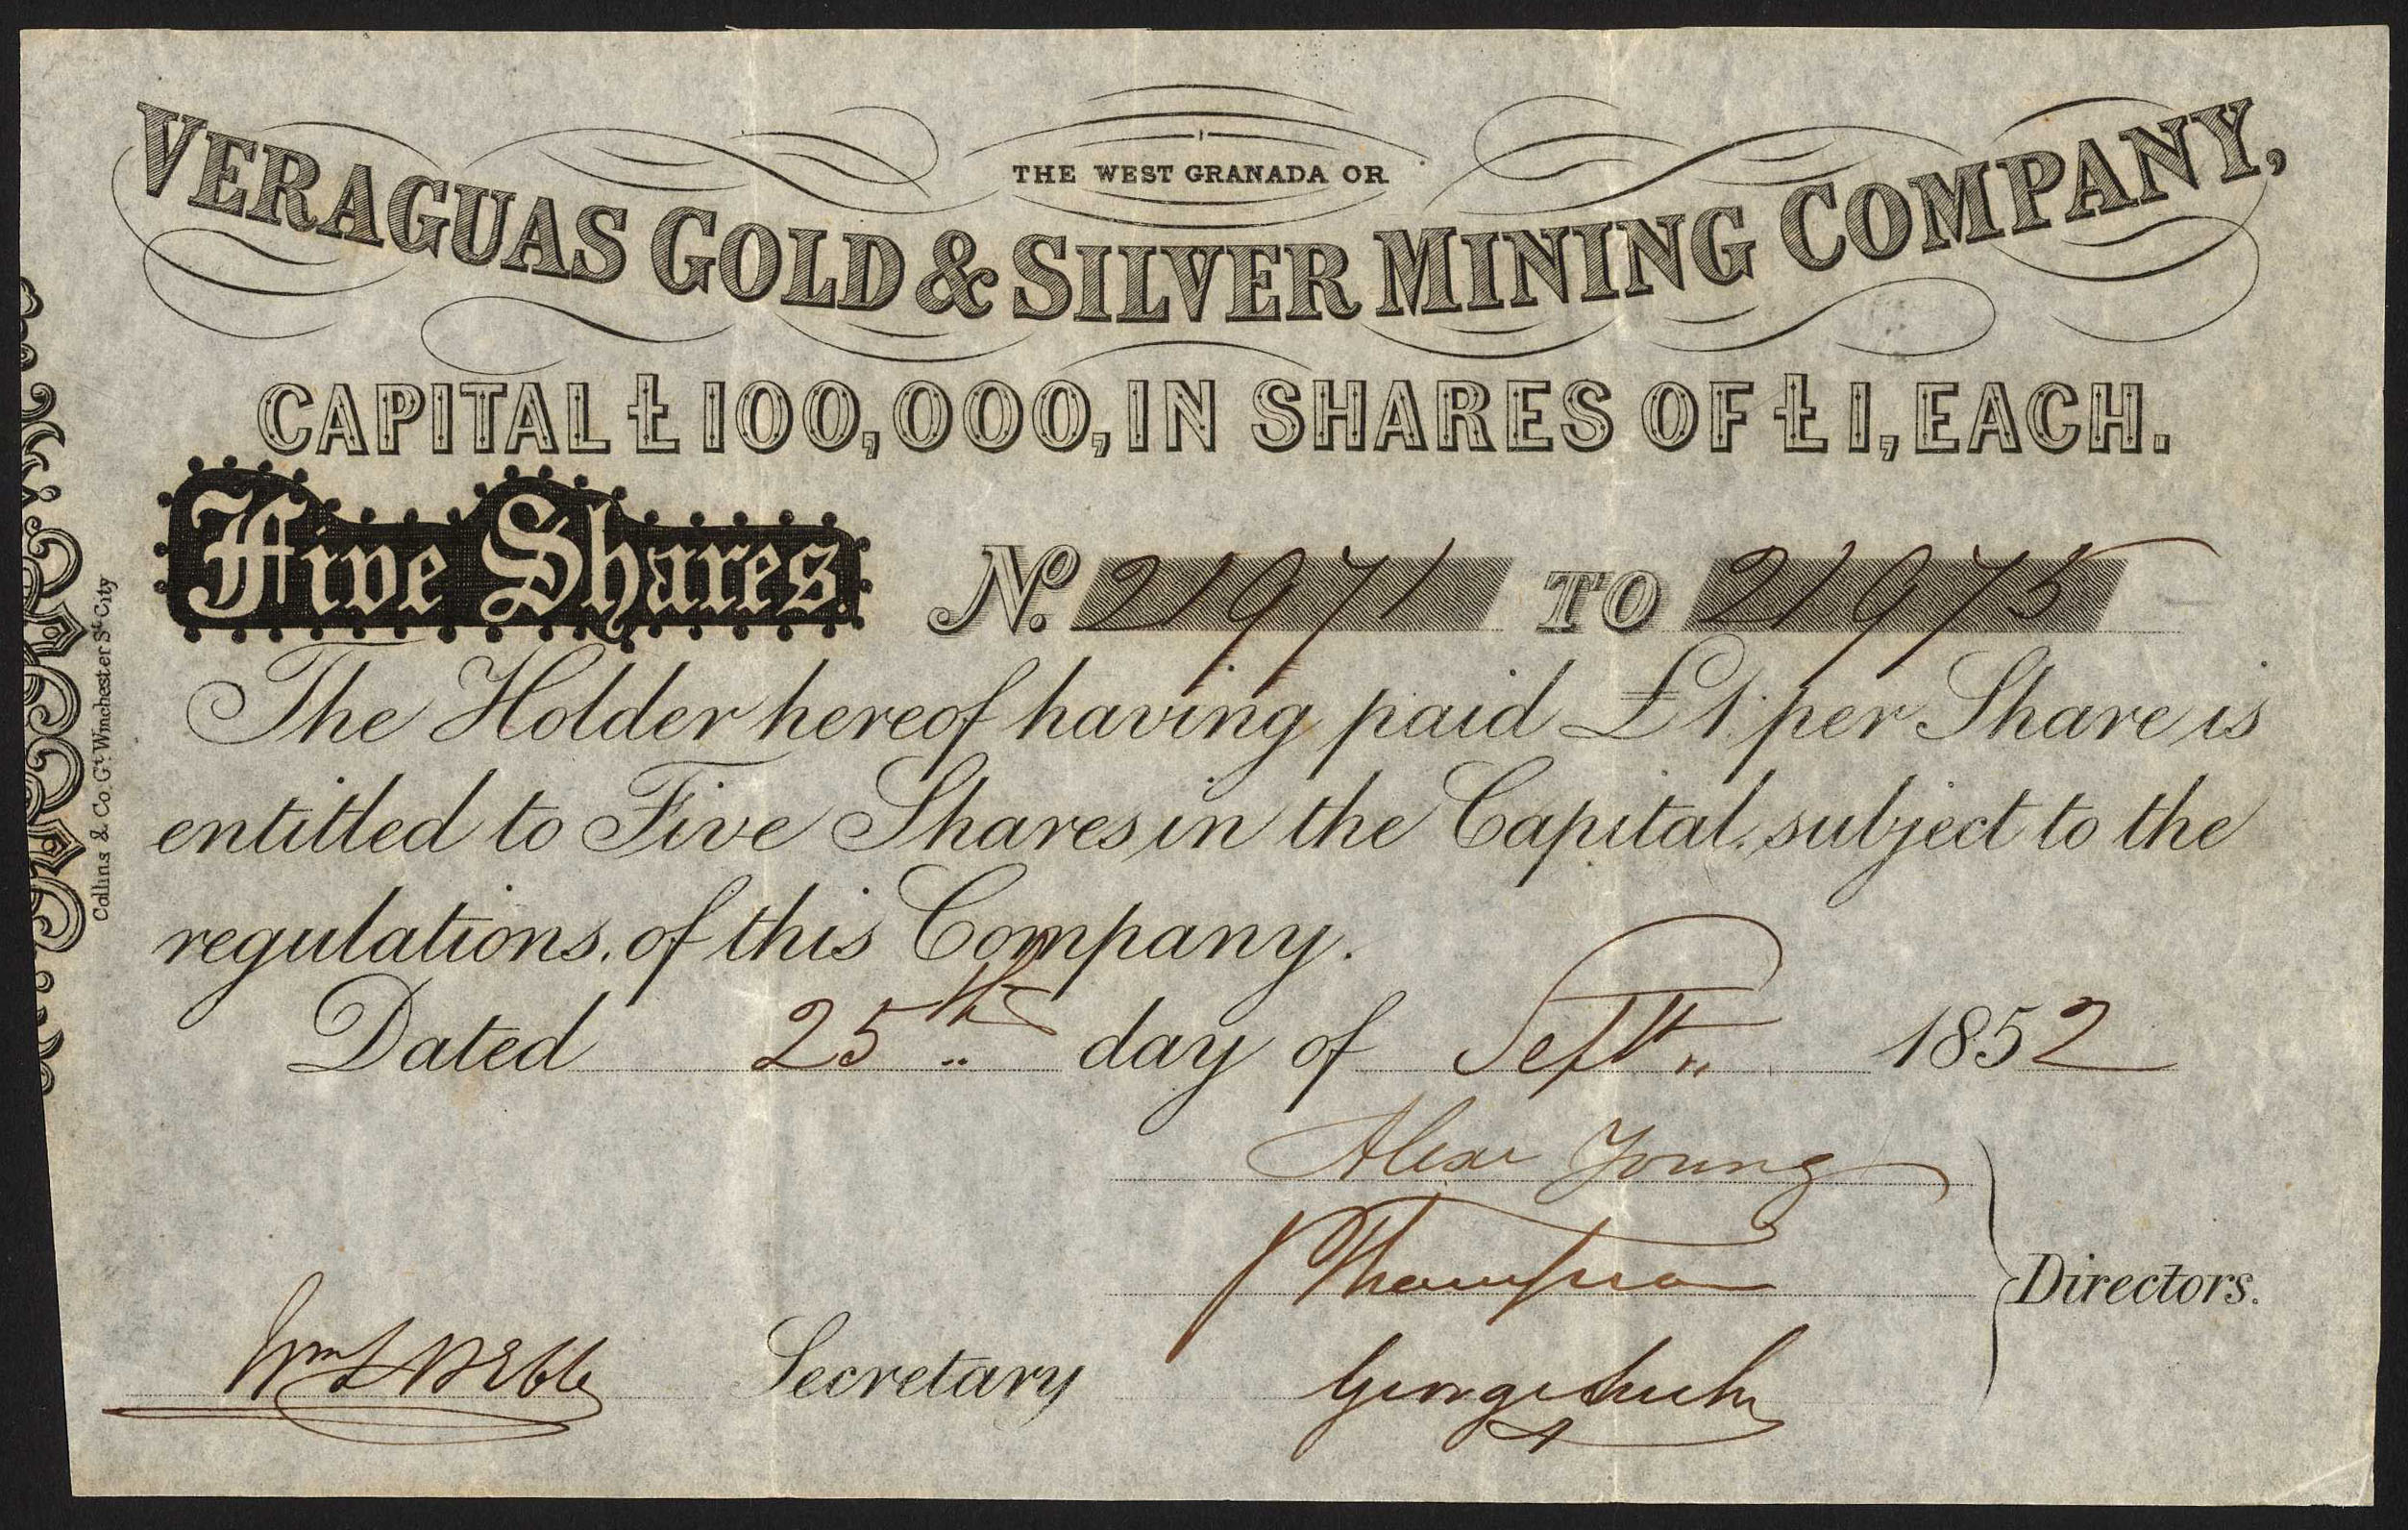 THE WEST GRANADA OR
VERAGUAS GOLD & SILVER MINING COMPANY,
CAPITAL £100,000, IN SHARES OF £1, EACH.
Five Shares. No. 21971 TO 21975
The Holder hereof having paid £1. per Share is
entitled to Five Shares in the Capital, subject to the
regulations, of this Company.
Dated 25th day of Septr 1852
Alexr Young
J Thompson
Directors.
Wm Secretary
George
Collins & Co. Gt. Winchester St. City